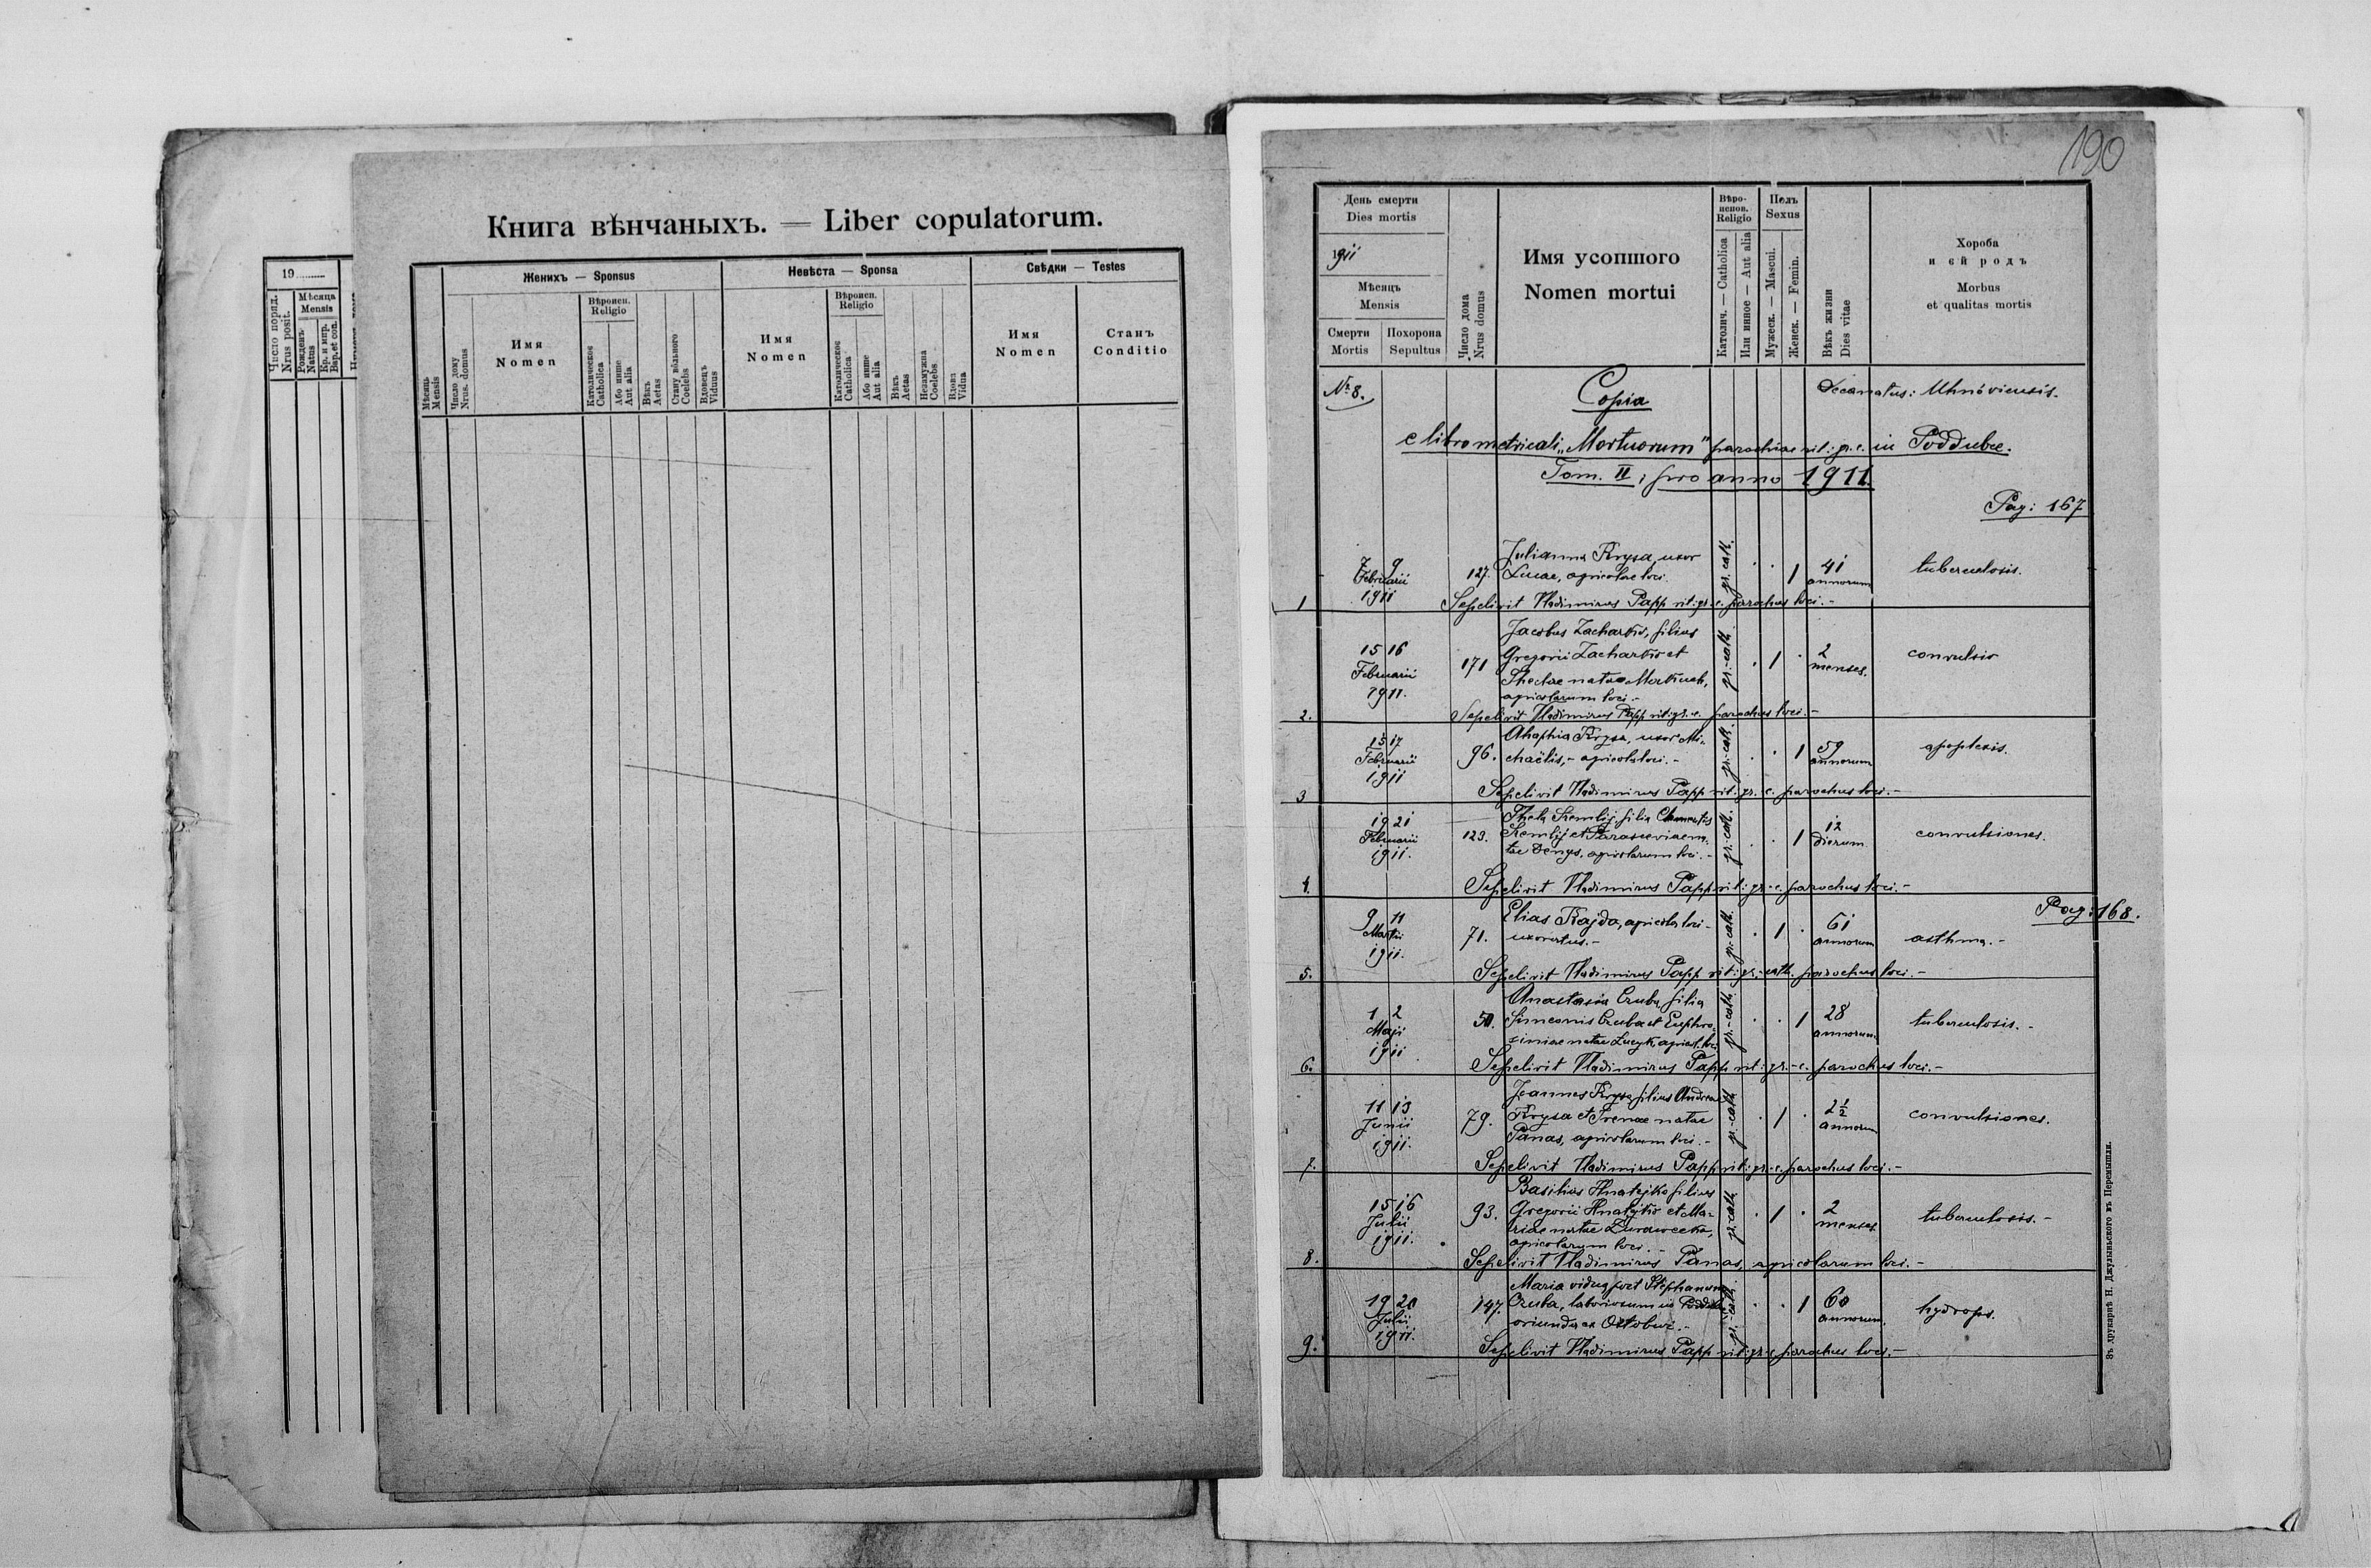 19
Число поряд.
Nrus posit.
Мѣсяца
Mensis
Рожденъ
Natus
Кр. и мѵр.
Bap. et con.
Книга вѣнчаныхъ. — Liber copulatorum.
Мѣсяць
Mensis
Число дому
Nrus. domus
Женихъ — Sponsus
Имя
Nomen
Вѣроисп.
Religio
Католическое
Catholica
Або инше
Aut alia
Вѣкъ
Aetas
Стану вольного
Coelebs
Вдовець
Viduus
Невѣста — Sponsa
Имя
Nomen
Вѣроисп.
Religio
Католическое
Catholica
Або инше
Aut alia
Вѣкъ
Aetas
Незамужна
Coelebs
Вдова
Vidua
Свѣдки — Testes
Имя
Nomen
Станъ
Conditio
190
День смерти
Dies mortis
1911
Мѣсяць
Mensis
Смерти
Mortis
Похорона
Sepultus
Число дома
Nrus domus
Имя усопшого
Nomen mortui
Вѣро-
испов.
Religio
Католич. — Catholica
Или инное — Aut alia
Полъ
Sexus
Мужеск. — Mascul.
Женск. — Femin.
Вѣкъ жизни
Dies vitae
Хороба
и єй родъ
Morbus
et qualitas mortis
Nr 8.
Copia
Decanatus: Uhnoviensis.
e libro metricali „Mortuorum" parochiae rit: gr. c. in Poddubce.
Tom. II, pro anno 1911.
Pag: 167
7 9
Februarii
1911
127.
Julianna Krysa, uxor
Lucae, agricolae loci.
gr. cath.
1
41
annorum
tuberculosis.
1 Sepelivit Vladimirus Papp rit: gr.-c. parochus loci.-
15 16
Februarii
1911.
171
Jacobus Zacharko, filius
Gregorii Zacharko et
Theclae natae
agricolarum loci.-
gr.-cath.
1
2
menses.
convulsio
2. Sepelivit Vladimirus Papp rit: gr.-c. parochus loci.-
15 17
Februarii
1911
96.
Ahaphia Krysa, uxor Mi-
chaëlis,- agricola loci.-
gr.-cath.
1
59
annorum
apoplexis.
3 Sepelivit Vladimirus Papp rit: gr.-c. parochus loci.-
19 21
Februarii
1911.
123.
Thecla filia Clementis
et Parasceviae na-
tae Denys, agricolarum loci.-
gr.-cath.
1
12
dierum
convulsiones.
4. Sepelivit Vladimirus Papp rit: gr.-c. parochus loci.-
Pag: 168.
9 11
Martii
1911.
71.
Elias Kajda, agricola loci-
uxoratus.-
gr.-cath.
1
61
annorum
asthma.-
5. Sepelivit Vladimirus Papp rit: gr.-cath. parochus loci.-
1 2
Maji
1911
50.
Anastasia Czuba, filia
Simeonis Czuba et Euphro-
siniae natae Lucyk, agricol. loci
gr.-cath.
1
28
annorum
tuberculosis.-
6. Sepelivit Vladimirus Papp rit: gr.-c. parochus loci.-
11 13
Junii
1911.
79.
Joannes Krysa filius Andreae
Krysa et Irenae natae
Panas, agricolarum loci.-
gr.-cath.
1
2½
annorum
convulsiones.
7. Sepelivit Vladimirus Papp rit: gr.-c. parochus loci.-
15 16
Julii
1911.
93.
Basilius Hnatejko filius
Gregorii Hnatejko et Ma-
riae natae
agricolarum loci.-
gr.-cath.
1
2
menses
tuberculosis.-
8. Sepelivit Vladimirus Panas, agricolarum loci.-
19 20
Julii
1911.
147.
Maria vidua post Stephanum
Czuba, in
oriunda ex
gr.-cath.
1
60
annorum.
hydrops.
9. Sepelivit Vladimirus Papp rit: gr.-c. parochus loci.-
Зъ друкарнѣ Н. Джулыньского въ Перемышли.